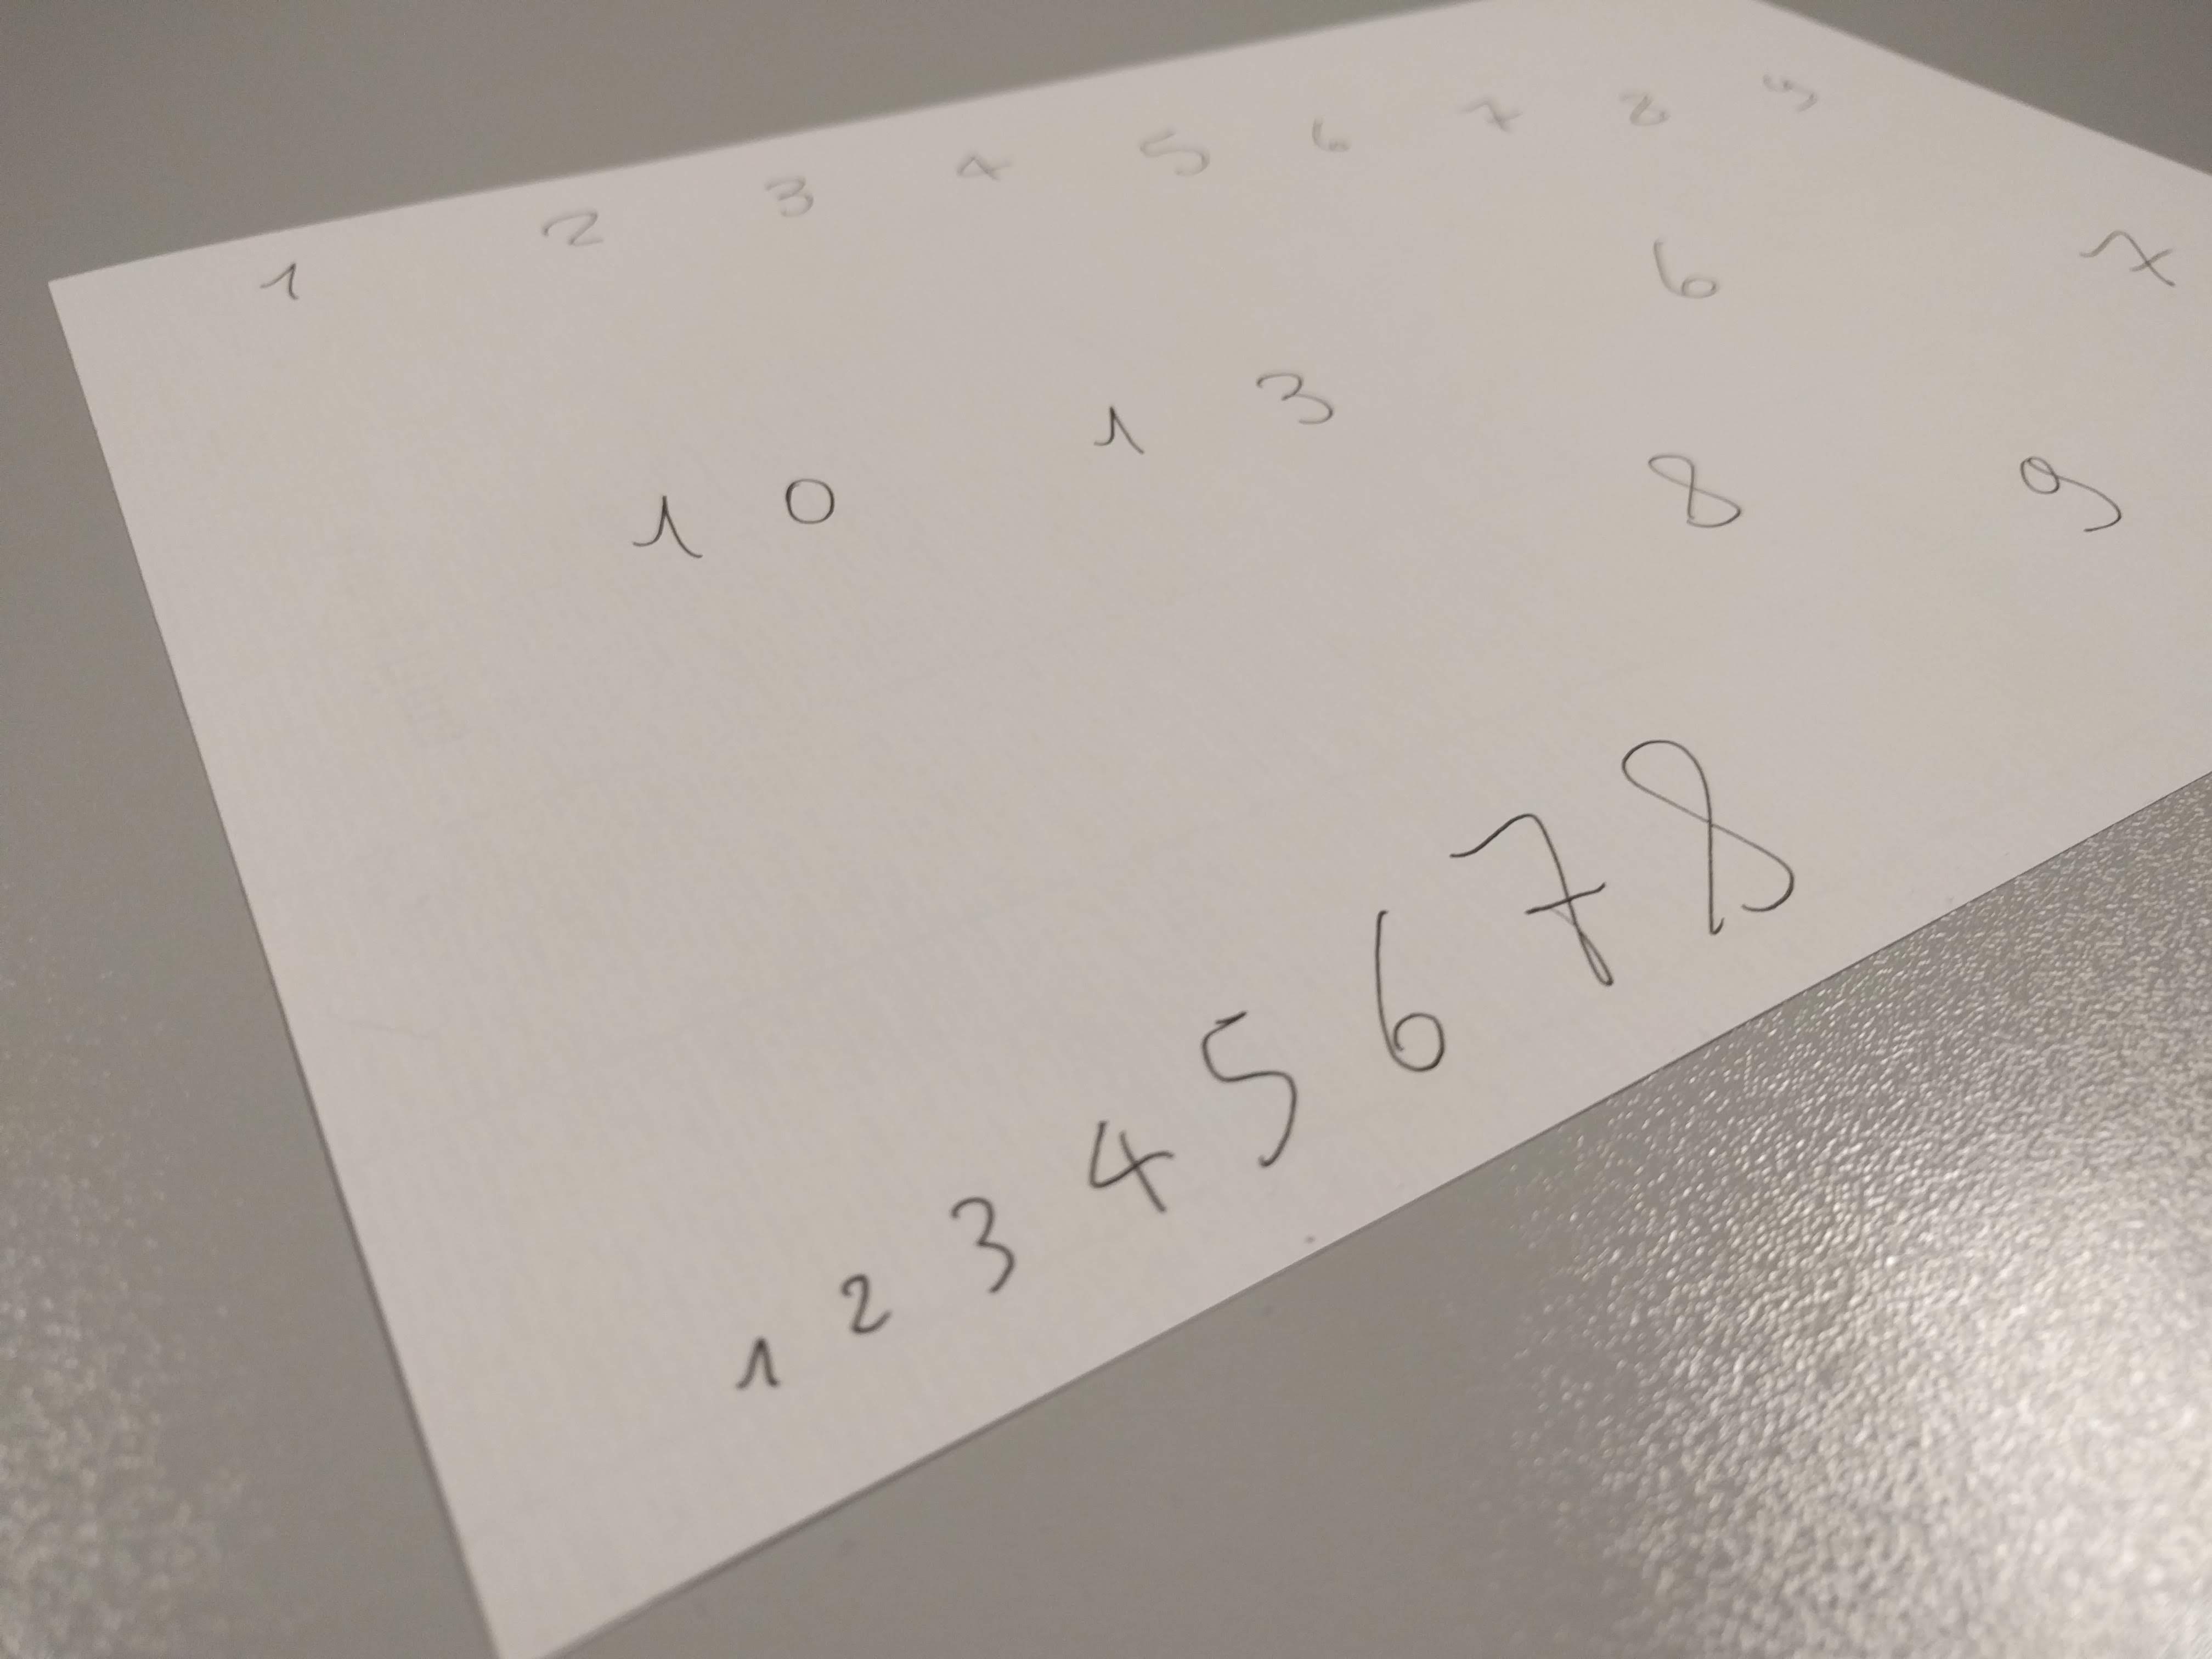 1 2 3 4 5 6 7 8 9
6 7
1 0 1 3
8 9
1 2 3 4 5 6 7 8